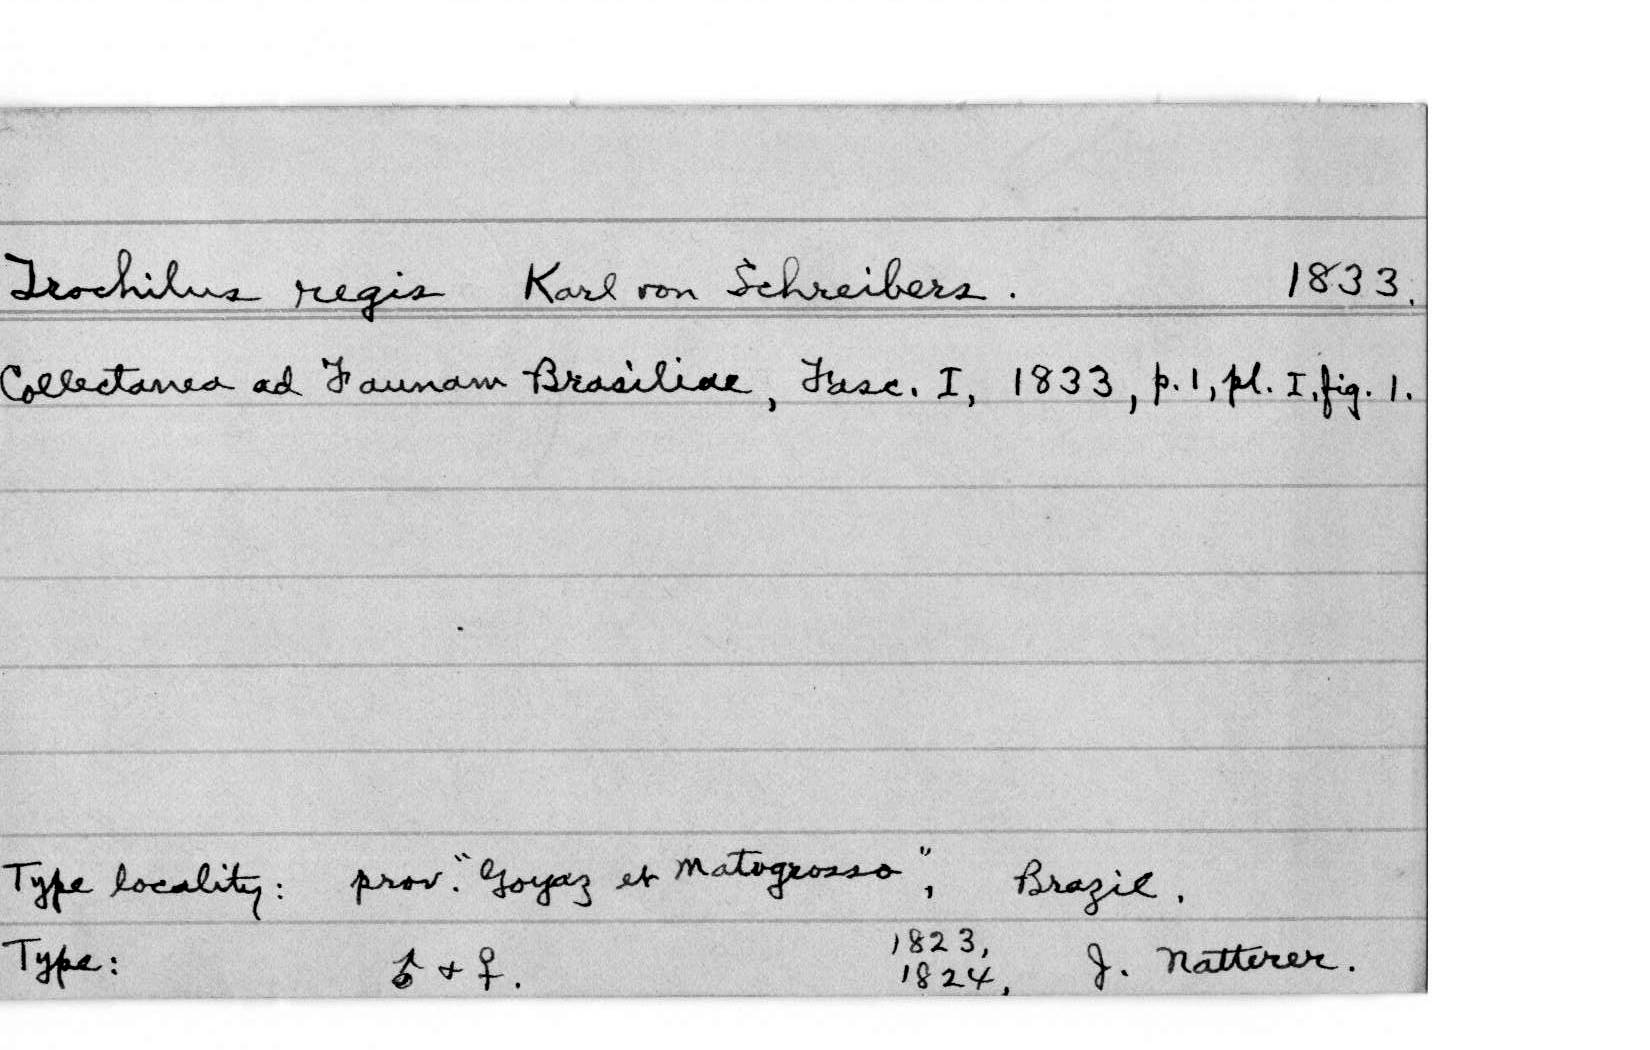 Trochilus regis Karl von Schreibers. 1833.
Collectanea ad Faunam Brasiliae, Fasc. I, 1833, p. 1, pl. I, fig. 1.
Type locality: prov. "Goyaz et Matogrosso", Brazil.
Type: ♂ + ♀. 1823, 1824, J. Natterer.